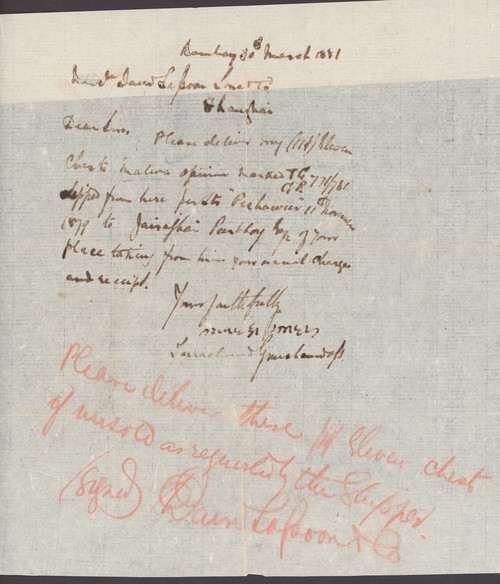 Bombay 30th March 1881
Messrs David Sassoon Sons & Co
Shanghai
Dear Sirs.
Please deliver my (11#) Eleven
Chests Malwa opium marked T G 771/781
G R
shipped from here per Str "Peshawur" 11th November
1879 to Jairajbhai Peerbhoy Esq of your
place taking from him your usual charges
and receipt.
Yours faithfully
Tarachand Ghanshamdass.
Please deliver these Eleven chests
if unsold as requested by the Shipper.
(signed) David Sassoon & Co